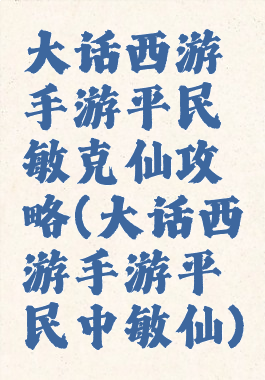 大话西游
手游平民
敏克仙攻
略(大话西
游手游平
民中敏仙)